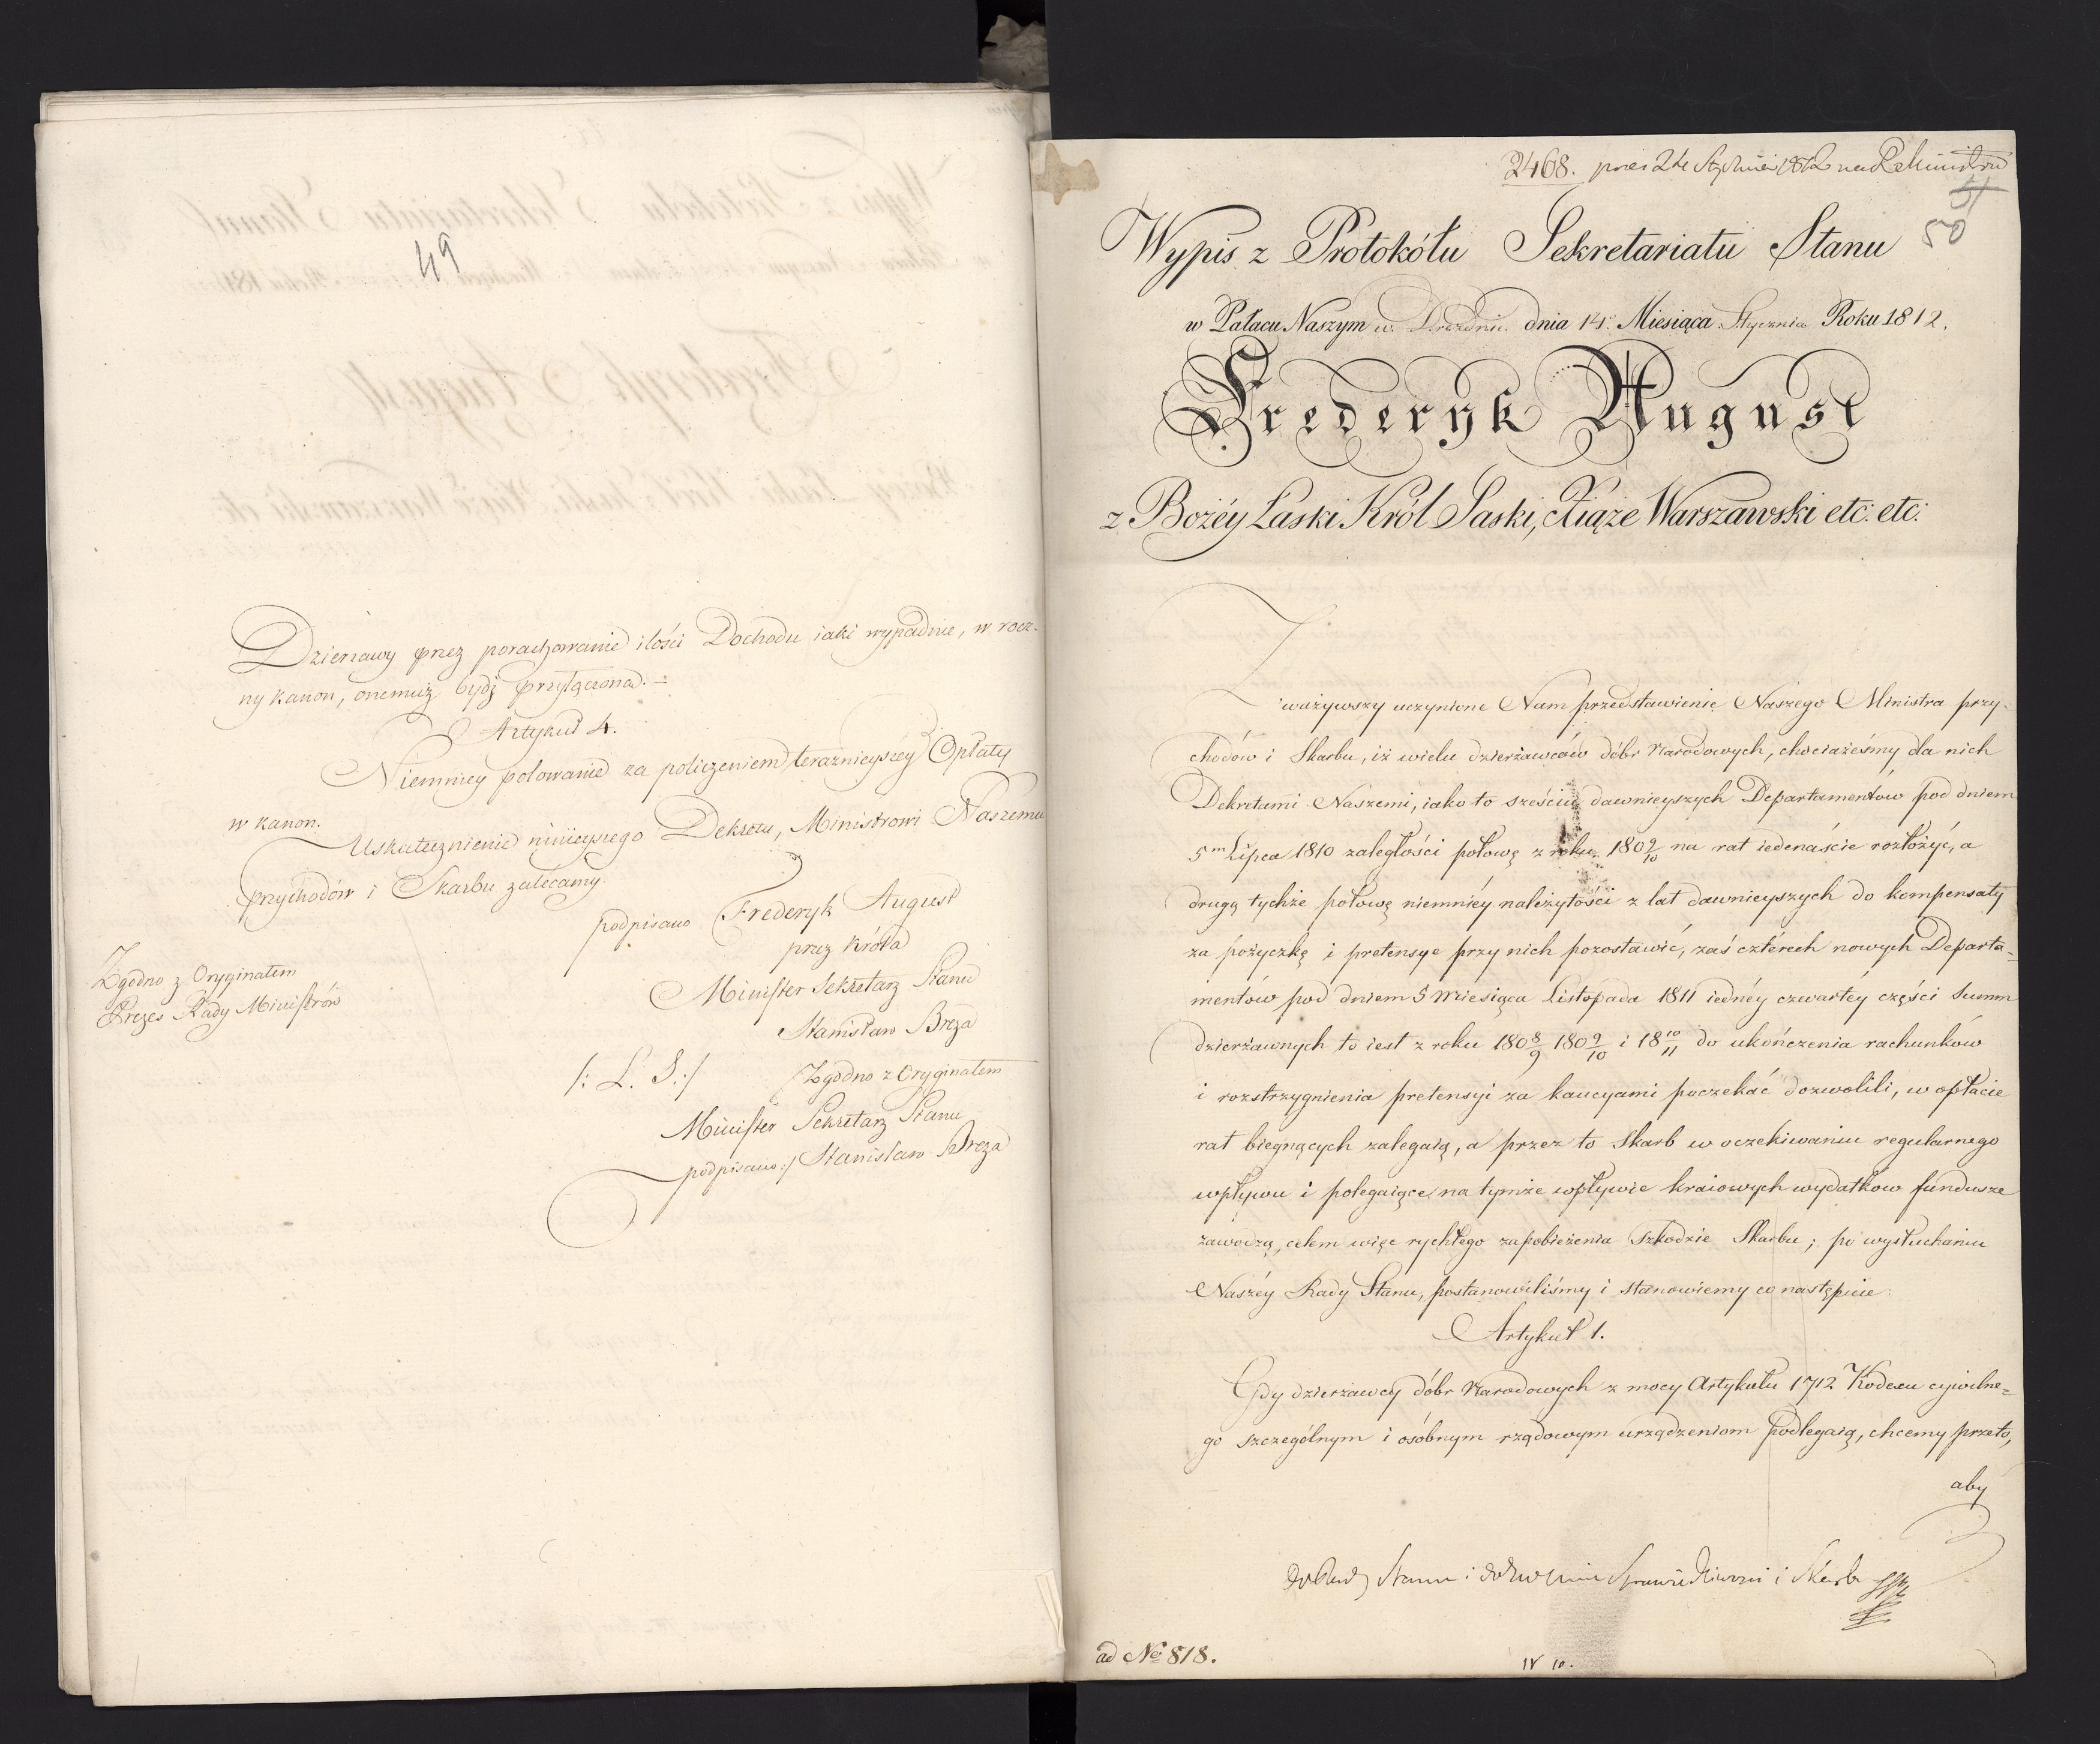 49
Dzierzawy przez porachowanie ilości Dochodu iaki wypadnie, w rocz-
ny kanon, onemuż bydź przyłączona.-
Artykuł 4.
Niemniey polowanie za policzeniem teraznieyszey Opłaty
w kanon.
Uskutecznienie ninieyszego Dekretu, Ministrowi Naszemu
przychodów i Skarbu zalecamy.
podpisano Frederyk August
przez Króla
Minister Sekretarz Stanu
Stanisław Breza
/: L. S.:/ Zgodno z Oryginałem
Minister Sekretarz Stanu
podpisano:/ Stanisław Breza
Zgodno z Oryginałem
Prezes Rady Ministrów
2468.
51
50
Wypis z Protokółu Sekretariatu Stanu
w Pałacu Naszym w Dreznie dnia 14. Miesiąca Stycznia Roku 1812.
Frederyk August
z Bożéy Łaski Król Saski, Xiąże Warszawski etc: etc:
Zważywszy uczynione Nam przedstawienie Naszego Ministra przy-
chodów i Skarbu, iż wielu dzierżawców dóbr Narodowych, chociażeśmy dla nich
Dekretami Naszemi, iako to sześciu dawnieyszych Departamentów pod dniem
5m Lipca 1810 zaległości połowę z roku 180 9/10 na rat iedenaście rozłożyć, a
drugą tychże połowę niemniéy należytości z lat dawnieyszych do kompensaty
za pożyczkę i pretensye przy nich pozostawić, zaś cztérech nowych Departa=
mentów pod dniem 5 Miesiąca Listopada 1811 iednéy czwartéy części Summ
dzierżawnych to iest z roku 180 8/9 180 9/10 i 18 10/11 do ukończenia rachunków
i rozstrzygnienia pretensyi za kaucyami poczekać dozwolili, w opłacie
rat biegnących zalegaią, a przez to Skarb w oczekiwaniu regularnego
wpływu i polegaiące na tymże wpływie kraiowych wydatków fundusze
zawodzą, celem więc rychłego zapobieżenia szkodzie Skarbu; po wysłuchaniu
Naszéy Rady Stanu, postanowiliśmy i stanowiemy co następuie:
Artykuł 1.
Gdy dzierżawcy dóbr Narodowych z mocy Artykułu 1712 Kodexu cywilne=
go szczególnym i osóbnym rządowym urządzeniom podlegaią, chcemy przeto,
aby
do Rady Stanu i Sprawiedliwości i Skarbu
ad No 818.
IV 10.